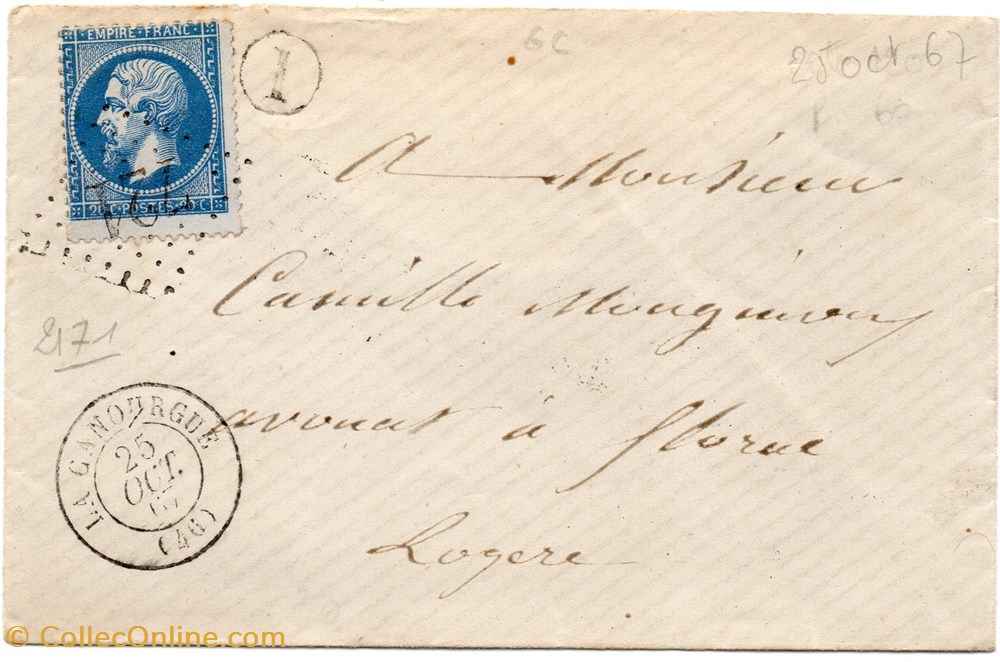 EMPIRE FRANC
20 C POSTES 20 C
1
GC
25 oct 67
A Monsieur
Camille
avouat à Florac
Lozere
2171
LA CANOURGUE
25
OCT.
67
(46)
© CollecOnline.com